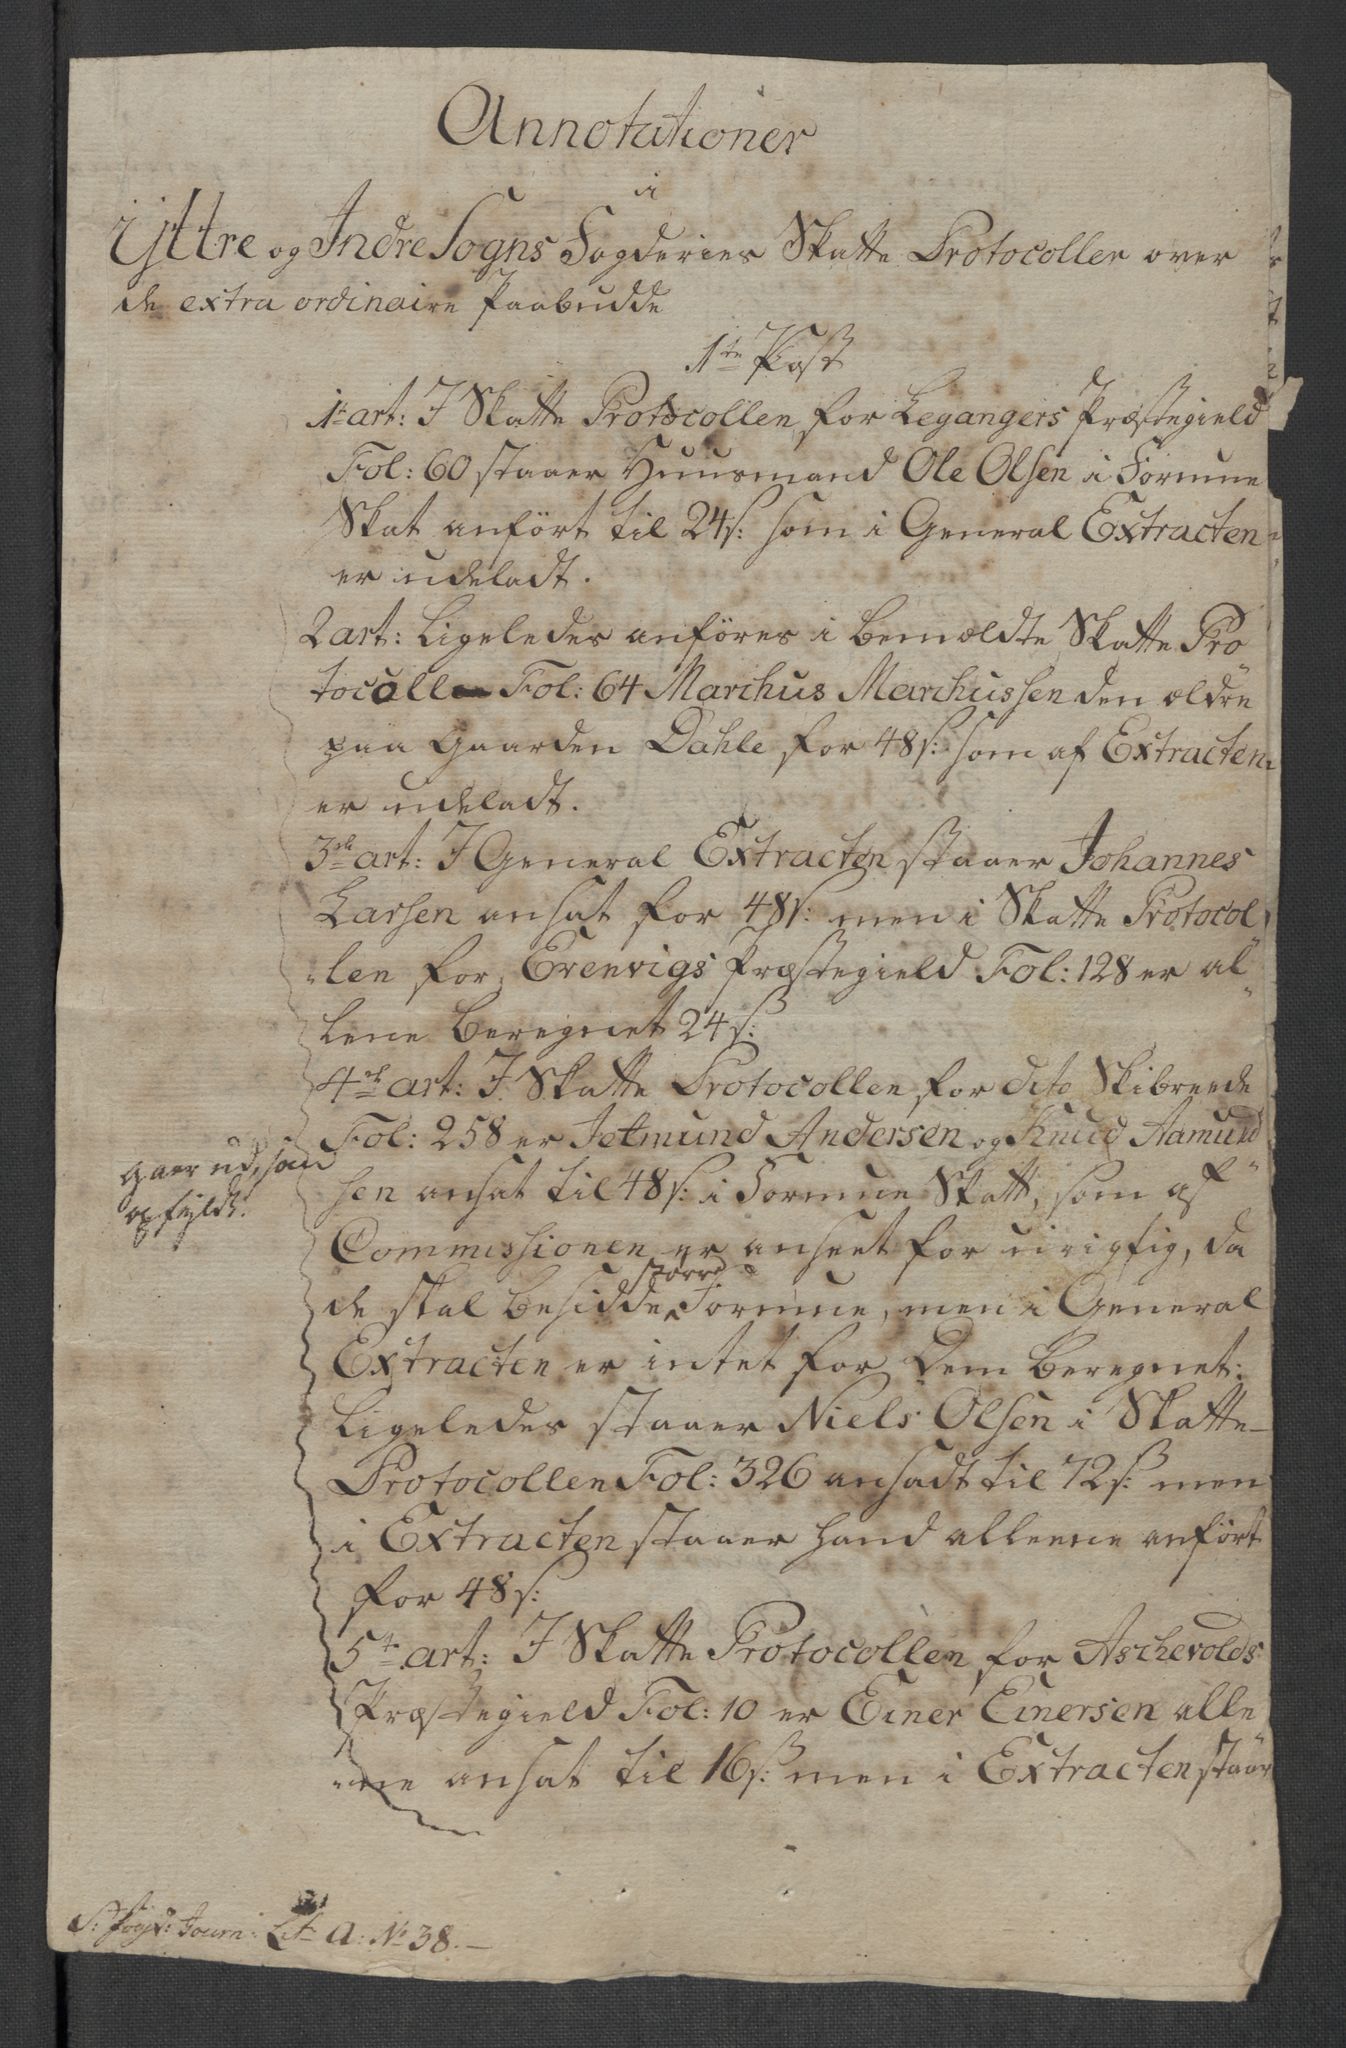 Annotationer
i
Yttre og Indre Sogns Fogderies Skatte Protocoller over
de extra ordinaire Paabudde
1te Post
1t art: I Skatte Protocollen for Legangers Præstegield
Fol: 60 staaer Huusmand Ole Olsen i Formue
Skat anført til 24s: som i General Extracten
er udeladt.
2 art: Ligeledes anføres i bemældte Skatte Pro
tocollen Fol: 64 Marchus Marchussen den ældre
paa Gaarden Dahle for 48s: som af Extracten
er udeladt.
3de art: I General Extracten staaer Johannes
Larsen ansat for 48s: men i Skatte Protocol
len for Evenvigs Præstegield Fol: 128 er al
lene beregnet 24s:
4de art: I Skatte Protocollen for dito Skibreede
Fol: 258 er Jetmund Andersen og Knud Aamund
sen ansat til 48s: i Formue Skatt, som af
Commissionen er anseet for urigtig, da
de skal besidde større Formue, men i General
Extracten er intet for dem beregnet:
Ligeledes staaer Niels Olsen i Skatte
Protocollen Fol: 326 ansadt til 72s: men
i Extracten staaer hand alleene anført
for 48s:
5te art: I Skatte Protocollen for Aschevolds
Præstegield Fol: 10 er Einer Einersen alle
ene ansat til 16s: men i Extracten staar
gaaer ud, som
opfyldt.
S: Fogd: Journ: Litr a: No 38.